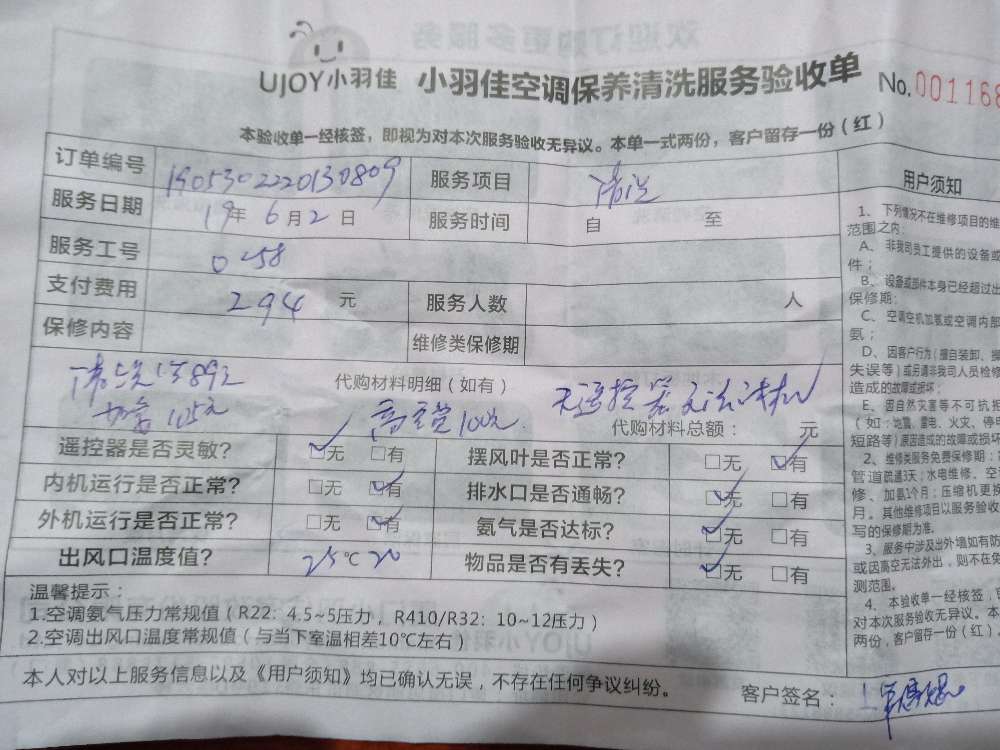 UJOY小羽佳 小羽佳空调保养清洗服务验收单 No.001168
本验收单一经核签，即视为对本次服务验收无异议。本单一式两份，客户留存一份（红）
订单编号 1905302220130809 服务项目 清洗
服务日期 19年 6月2日 服务时间 自 至
服务工号 0258
支付费用 294 元 服务人数 人
保修内容 维修类保修期
清洗 189元 代购材料明细（如有） 无遥控器无法试机
加氨 105元 100元 代购材料总额： 元
遥控器是否灵敏？ □无 □有 摆风叶是否正常？ □无 □有
内机运行是否正常？ □无 □有 排水口是否通畅？ □无 □有
外机运行是否正常？ □无 □有 氨气是否达标？ □无 □有
出风口温度值？ 25℃ 20 物品是否有丢失？ □无 □有
温馨提示：
1.空调氨气压力常规值（R22：4.5~5压力，R410/R32：10~12压力）
2.空调出风口温度常规值（与当下室温相差10℃左右）
本人对以上服务信息以及《用户须知》均已确认无误，不存在任何争议纠纷。
客户签名：
用户须知
1、下列情况不在维修项目的维
范围之内：
A、非我司员工提供的设备或
件；
B、设备或部件本身已经超过出
保修期；
C、空调空机加氨或空调内部
氨；
D、因客户行为（擅自装卸、操
失误等）或另请非我司人员检修
造成的故障或损坏；
E、因自然灾害等不可抗拒
（如：地震、雷电、火灾、停电
短路等）原因造成的故障或损坏
2、维修类服务免费保修期：
管道疏通3天；水电维修、空
修、加氨1个月；压缩机更换
月。其他维修项目以服务验收
写的保修期为准。
3、服务中涉及出外墙如有防
或因高空无法外出，则不在免
测范围。
4、本验收单一经核签，
对本次服务验收无异议。本
两份，客户留存一份（红）